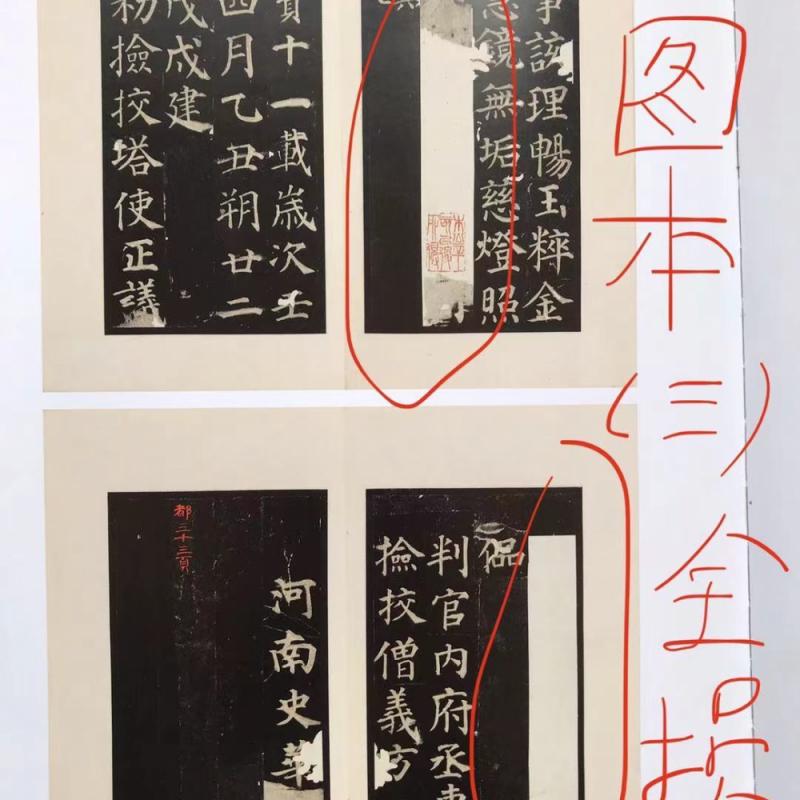 事該理暢玉粹金
慧鏡無垢慈燈照
寶十一載歲次壬
四月乙丑朔廿二
戊戌建
勑撿挍塔使正議
侣
判官内府丞車
撿挍僧義方
河南史華
都三十三頁
图本(三)全损